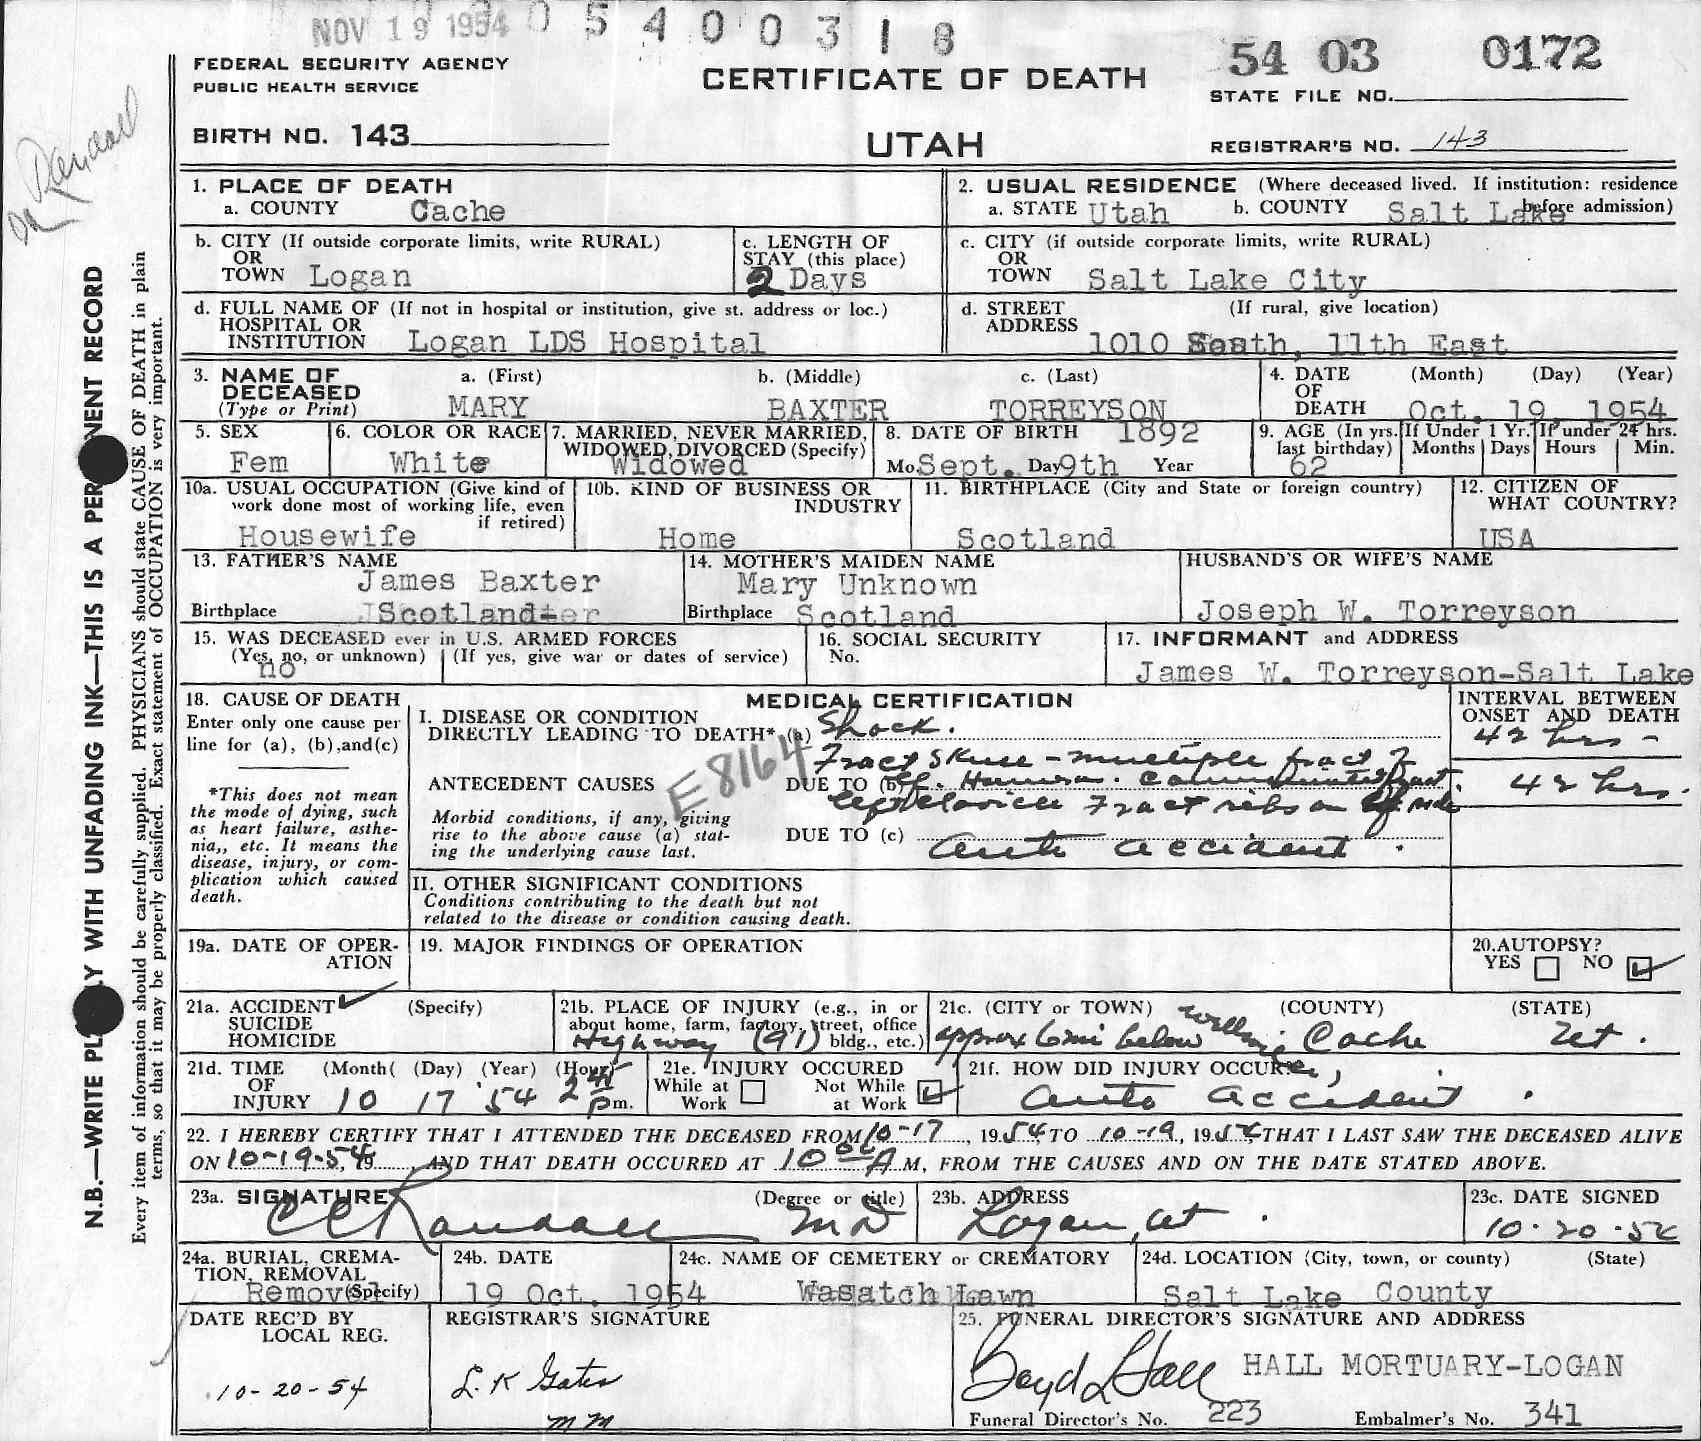 NOV 19 1954 0 5 4 0 0 3 1 8
54 03 0172
FEDERAL SECURITY AGENCY
PUBLIC HEALTH SERVICE
CERTIFICATE OF DEATH
STATE FILE NO.
BIRTH NO. 143
UTAH
REGISTRAR'S NO. 143
Randall
N.B.—WRITE PL Y WITH UNFADING INK—THIS IS A PER NENT RECORD
Every item of information should be carefully supplied. PHYSICIANS should state CAUSE OF DEATH in plain
terms, so that it may be properly classified. Exact statement of OCCUPATION is very important.
1. PLACE OF DEATH
a. COUNTY Cache
2. USUAL RESIDENCE (Where deceased lived. If institution: residence
before admission)
a. STATE Utah b. COUNTY Salt Lake
b. CITY (If outside corporate limits, write RURAL)
OR
TOWN Logan
c. LENGTH OF
STAY (this place)
2 Days
c. CITY (if outside corporate limits, write RURAL)
OR
TOWN Salt Lake City
d. FULL NAME OF (If not in hospital or institution, give st. address or loc.)
HOSPITAL OR
INSTITUTION Logan LDS Hospital
d. STREET (If rural, give location)
ADDRESS
1010 South, 11th East
3. NAME OF
DECEASED
(Type or Print)
a. (First) b. (Middle) c. (Last)
MARY BAXTER TORREYSON
4. DATE (Month) (Day) (Year)
OF
DEATH Oct. 19, 1954
5. SEX
Fem
6. COLOR OR RACE
White
7. MARRIED, NEVER MARRIED,
WIDOWED, DIVORCED (Specify)
Widowed
8. DATE OF BIRTH 1892
Mo. Sept. Day 9th Year
9. AGE (In yrs.
last birthday)
62
If Under 1 Yr.
Months Days
If under 24 hrs.
Hours Min.
10a. USUAL OCCUPATION (Give kind of
work done most of working life, even
if retired)
Housewife
10b. KIND OF BUSINESS OR
INDUSTRY
Home
11. BIRTHPLACE (City and State or foreign country)
Scotland
12. CITIZEN OF
WHAT COUNTRY?
USA
13. FATHER'S NAME
James Baxter
Birthplace Scotland
14. MOTHER'S MAIDEN NAME
Mary Unknown
Birthplace Scotland
HUSBAND'S OR WIFE'S NAME
Joseph W. Torreyson
15. WAS DECEASED ever in U.S. ARMED FORCES
(Yes, no, or unknown) (If yes, give war or dates of service)
no
16. SOCIAL SECURITY
No.
17. INFORMANT and ADDRESS
James W. Torreyson-Salt Lake
18. CAUSE OF DEATH
Enter only one cause per
line for (a), (b), and (c)
*This does not mean
the mode of dying, such
as heart failure, asthe-
nia,, etc. It means the
disease, injury, or com-
plication which caused
death.
MEDICAL CERTIFICATION
INTERVAL BETWEEN
ONSET AND DEATH
I. DISEASE OR CONDITION
DIRECTLY LEADING TO DEATH* (a) Shock.
42 hrs -
E8164
ANTECEDENT CAUSES
Fract Skull - multiple fract of
DUE TO (b) left Humerus. Comminuted fract
42 hrs.
left clavicle Fract ribs on left side
Morbid conditions, if any, giving
rise to the above cause (a) stat-
ing the underlying cause last.
DUE TO (c) auto accident.
II. OTHER SIGNIFICANT CONDITIONS
Conditions contributing to the death but not
related to the disease or condition causing death.
19a. DATE OF OPER-
ATION
19. MAJOR FINDINGS OF OPERATION
20. AUTOPSY?
YES NO ✓
21a. ACCIDENT ✓ (Specify)
SUICIDE
HOMICIDE
21b. PLACE OF INJURY (e.g., in or
about home, farm, factory, street, office
bldg., etc.)
Highway (91)
21c. (CITY or TOWN) (COUNTY) (STATE)
approx 6 mi below Wellsville Cache Ut.
21d. TIME (Month( (Day) (Year) (Hour)
OF
INJURY 10 17 '54 2 pm.
21e. INJURY OCCURED
While at Work Not While at Work ✓
21f. HOW DID INJURY OCCUR
auto accident.
22. I HEREBY CERTIFY THAT I ATTENDED THE DECEASED FROM 10-17, 1954 TO 10-19, 1954 THAT I LAST SAW THE DECEASED ALIVE
ON 10-19-54, 19 AND THAT DEATH OCCURED AT 10 00 A M, FROM THE CAUSES AND ON THE DATE STATED ABOVE.
23a. SIGNATURE (Degree or title)
CC Randall MD
23b. ADDRESS
Logan, Ut.
23c. DATE SIGNED
10-20-54
24a. BURIAL, CREMA-
TION, REMOVAL
(Specify)
Removal
24b. DATE
19 Oct. 1954
24c. NAME OF CEMETERY or CREMATORY
Wasatch Lawn
24d. LOCATION (City, town, or county) (State)
Salt Lake County
DATE REC'D BY
LOCAL REG.
10-20-54
REGISTRAR'S SIGNATURE
L. K Gates
mm
25. FUNERAL DIRECTOR'S SIGNATURE AND ADDRESS
Boyd L Hall HALL MORTUARY-LOGAN
Funeral Director's No. 223 Embalmer's No. 341